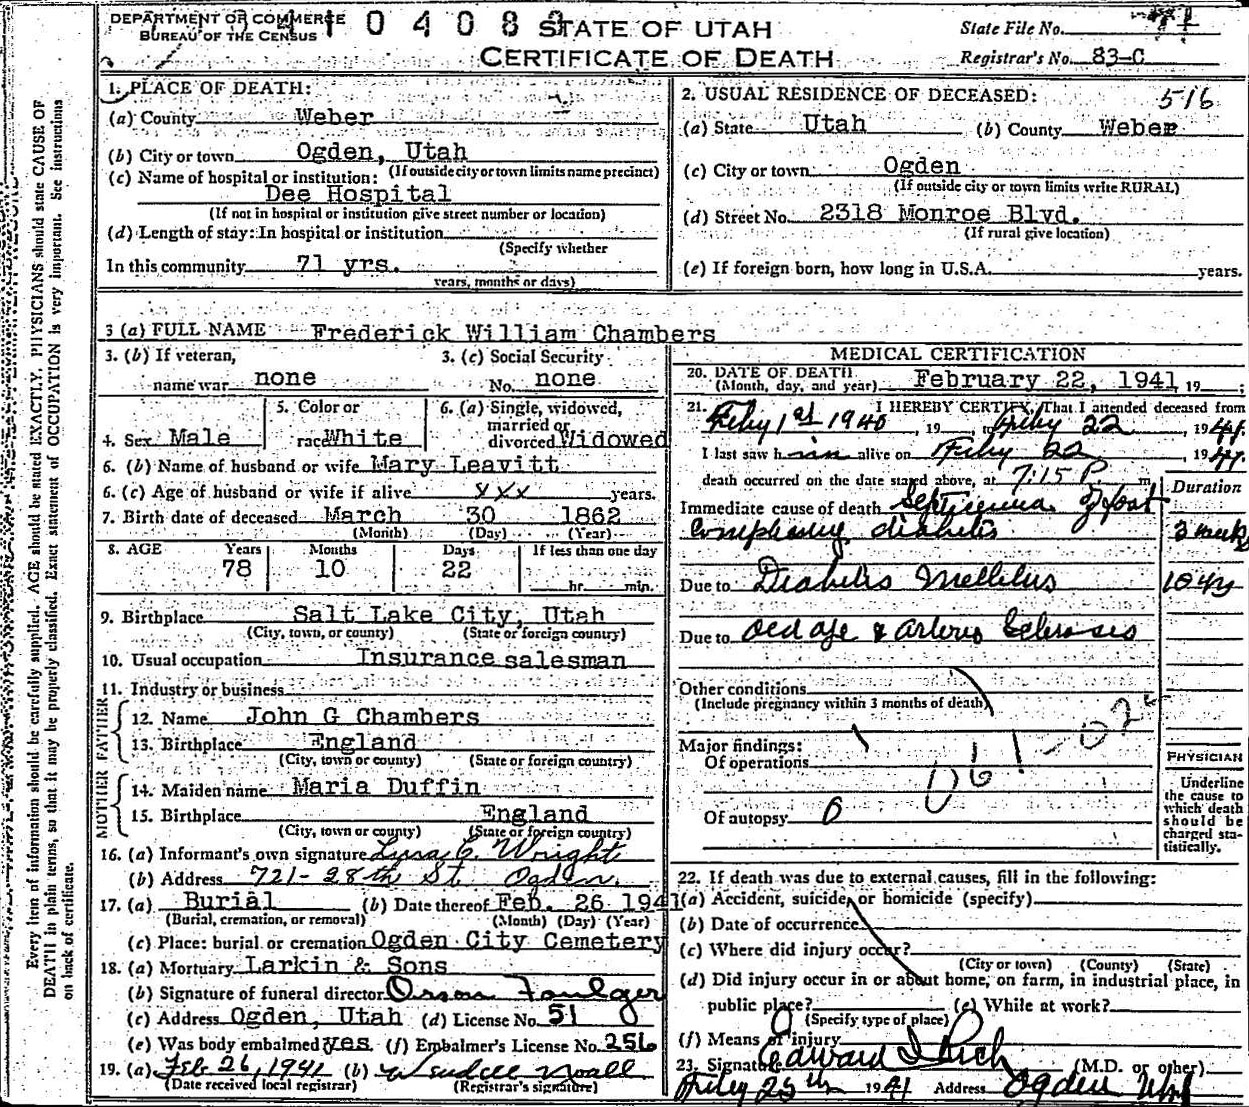 Every item of information should be carefully supplied. AGE should be stated EXACTLY. PHYSICIANS should state CAUSE OF
DEATH in plain terms, so that it may be properly classified. Exact statement of OCCUPATION is very important. See instructions
on back of certificate.
DEPARTMENT OF COMMERCE
BUREAU OF THE CENSUS
STATE OF UTAH
CERTIFICATE OF DEATH
State File No.
Registrar's No. 83-C
1. PLACE OF DEATH:
(a) County Weber
(b) City or town Ogden, Utah
(If outside city or town limits name precinct)
(c) Name of hospital or institution:
Dee Hospital
(If not in hospital or institution give street number or location)
(d) Length of stay: In hospital or institution
(Specify whether
In this community 71 yrs.
years, months or days)
2. USUAL RESIDENCE OF DECEASED: 516
(a) State Utah (b) County Weber
(c) City or town: Ogden
(If outside city or town limits write RURAL)
(d) Street No. 2318 Monroe Blvd.
(If rural give location)
(e) If foreign born, how long in U.S.A. years.
3 (a) FULL NAME Frederick William Chambers
3. (b) If veteran, name war none
3. (c) Social Security No. none
4. Sex Male
5. Color or race White
6. (a) Single, widowed, married or divorced Widowed
6. (b) Name of husband or wife Mary Leavitt
6. (c) Age of husband or wife if alive xxx years.
7. Birth date of deceased March 30 1862
(Month) (Day) (Year)
8. AGE Years Months Days If less than one day
78 10 22 hr. min.
9. Birthplace Salt Lake City, Utah
(City, town, or county) (State or foreign country)
10. Usual occupation Insurance salesman
11. Industry or business
FATHER
12. Name John G Chambers
13. Birthplace England
(City, town or county) (State or foreign country)
MOTHER
14. Maiden name Maria Duffin
15. Birthplace England
(City, town or county) (State or foreign country)
16. (a) Informant's own signature C. Wright
(b) Address 721-28th St. Ogden.
17. (a) Burial (b) Date thereof Feb. 26 1941
(Burial, cremation, or removal) (Month) (Day) (Year)
(c) Place: burial or cremation Ogden City Cemetery
18. (a) Mortuary Larkin & Sons
(b) Signature of funeral director Orson Foulger
(c) Address Ogden, Utah (d) License No. 51
(e) Was body embalmed yes (f) Embalmer's License No. 256
19. (a) Feb 26, 1941 (b) Wendell Noall
(Date received local registrar) (Registrar's signature)
MEDICAL CERTIFICATION
20. DATE OF DEATH
(Month, day, and year) February 22, 1941, 19 ;
21. I HEREBY CERTIFY, That I attended deceased from
Feby 1st 1940, 19 , to Feby 22, 1941.
I last saw him alive on Feby 22, 1941.
death occurred on the date stated above, at 7:15 P. m
Duration
Immediate cause of death Septicemia of foot
diabetis 3 weeks
Due to Diabetis Mellitus 10 yrs
Due to Old age & Arterio Sclerosis
Other conditions
(Include pregnancy within 3 months of death)
Major findings:
Of operations
061-02
Of autopsy 0
PHYSICIAN
Underline
the cause to
which death
should be
charged sta-
tistically.
22. If death was due to external causes, fill in the following:
(a) Accident, suicide, or homicide (specify)
(b) Date of occurrence
(c) Where did injury occur?
(City or town) (County) (State)
(d) Did injury occur in or about home, on farm, in industrial place, in
public place? (e) While at work?
(Specify type of place)
(f) Means of injury
23. Signature Edward I Rich (M.D. or other)
Feby 25th 1941 Address Ogden Utah